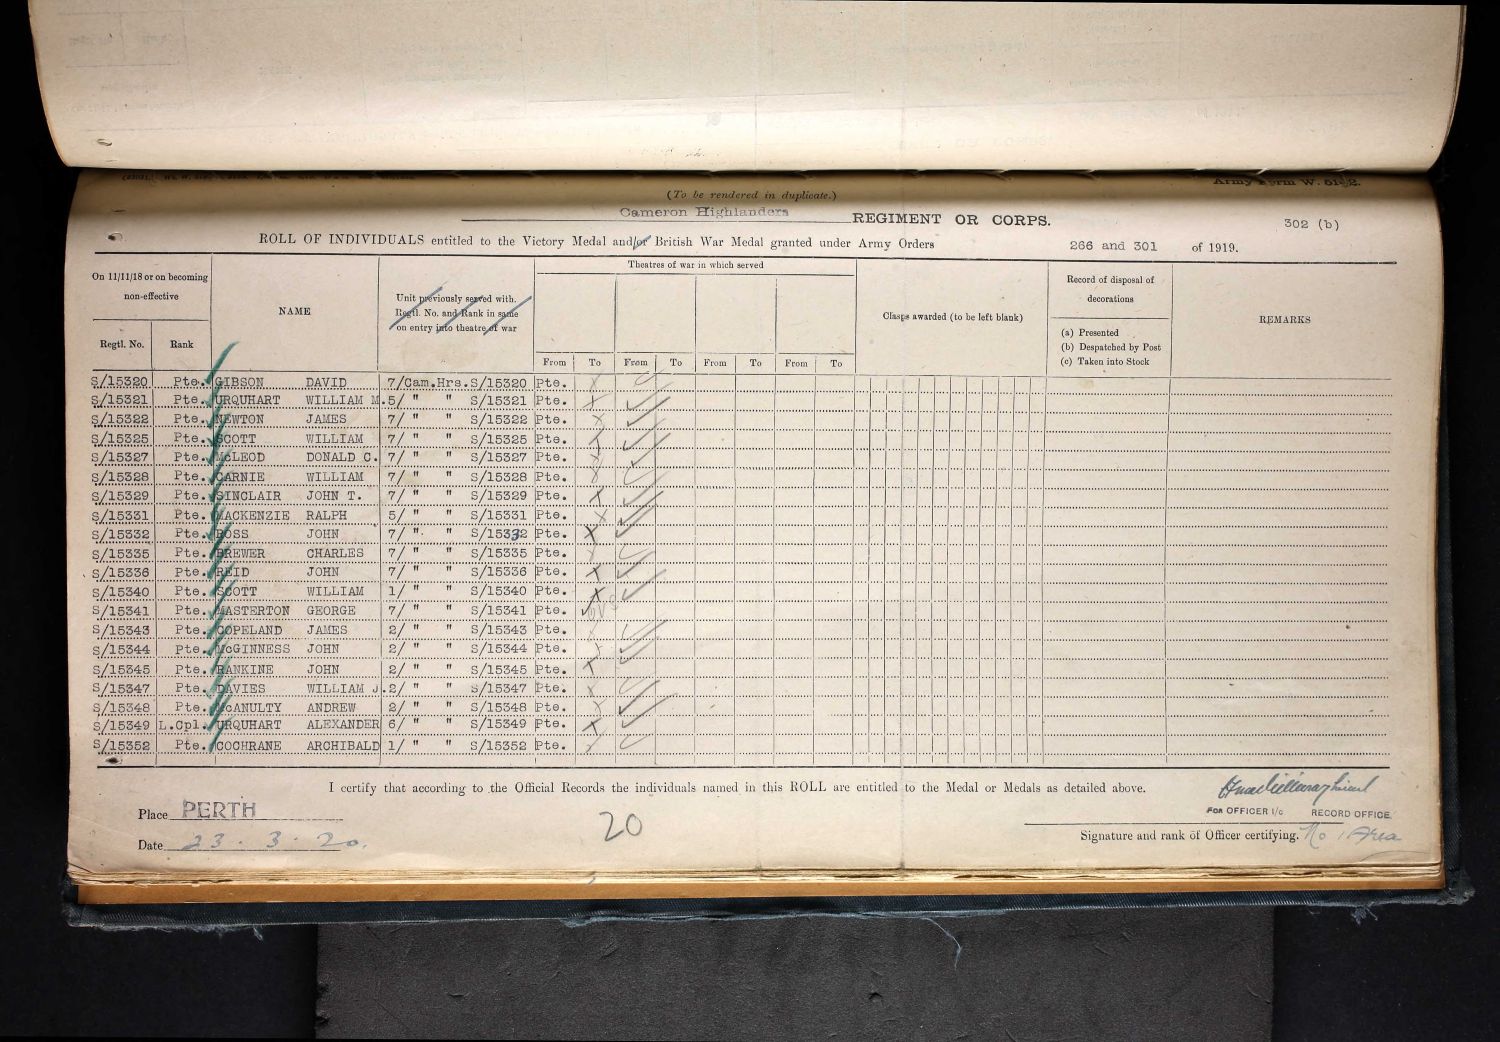 (To be rendered in duplicate.)
Army Form W. 5182.
Cameron Highlanders REGIMENT OR CORPS. 302 (b)
ROLL OF INDIVIDUALS entitled to the Victory Medal and/or British War Medal granted under Army Orders 266 and 301 of 1919.
On 11/11/18 or on becoming non-effective
Regtl. No. Rank
NAME
Unit previously served with. Regtl. No. and Rank in same on entry into theatre of war
Theatres of war in which served
From To From To From To From To
Clasps awarded (to be left blank)
Record of disposal of decorations
(a) Presented
(b) Despatched by Post
(c) Taken into Stock
REMARKS
S/15320 Pte. GIBSON DAVID 7/Cam.Hrs.S/15320 Pte.
S/15321 Pte. URQUHART WILLIAM M. 5/ " " S/15321 Pte.
S/15322 Pte. NEWTON JAMES 7/ " " S/15322 Pte.
S/15325 Pte. SCOTT WILLIAM 7/ " " S/15325 Pte.
S/15327 Pte. McLEOD DONALD C. 7/ " " S/15327 Pte.
S/15328 Pte. CARNIE WILLIAM 7/ " " S/15328 Pte.
S/15329 Pte. SINCLAIR JOHN T. 7/ " " S/15329 Pte.
S/15331 Pte. MACKENZIE RALPH 5/ " " S/15331 Pte.
S/15332 Pte. ROSS JOHN 7/ " " S/15332 Pte.
S/15335 Pte. BREWER CHARLES 7/ " " S/15335 Pte.
S/15336 Pte. REID JOHN 7/ " " S/15336 Pte.
S/15340 Pte. SCOTT WILLIAM 1/ " " S/15340 Pte.
S/15341 Pte. MASTERTON GEORGE 7/ " " S/15341 Pte.
S/15343 Pte. COPELAND JAMES 2/ " " S/15343 Pte.
S/15344 Pte. McGINNESS JOHN 2/ " " S/15344 Pte.
S/15345 Pte. RANKINE JOHN 2/ " " S/15345 Pte.
S/15347 Pte. DAVIES WILLIAM J. 2/ " " S/15347 Pte.
S/15348 Pte. McANULTY ANDREW 2/ " " S/15348 Pte.
S/15349 L.Cpl. URQUHART ALEXANDER 6/ " " S/15349 Pte.
S/15352 Pte. COCHRANE ARCHIBALD 1/ " " S/15352 Pte.
I certify that according to the Official Records the individuals named in this ROLL are entitled to the Medal or Medals as detailed above.
Place PERTH
20
FOR OFFICER I/c RECORD OFFICE
Date 23. 3. 20.
Signature and rank of Officer certifying. No 1 Area